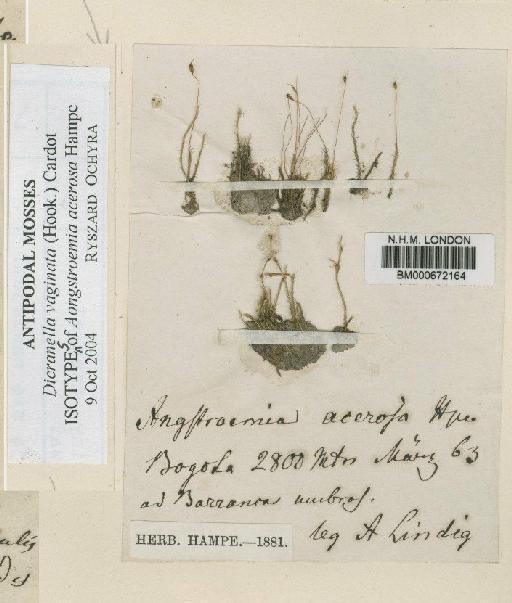 ANTIPODAL MOSSES
Dicranella vaginata (Hook.) Cardot
ISOTYPES of Aongstroemia acerosa Hampe
RYSZARD OCHYRA
9 Oct 2004
N.H.M. LONDON
BM000672164
Angstroemia acerosa Hpe
Bogota 2800 Mtr März 63
ad Barrancas umbros.
leg A Lindig
HERB. HAMPE.—1881.